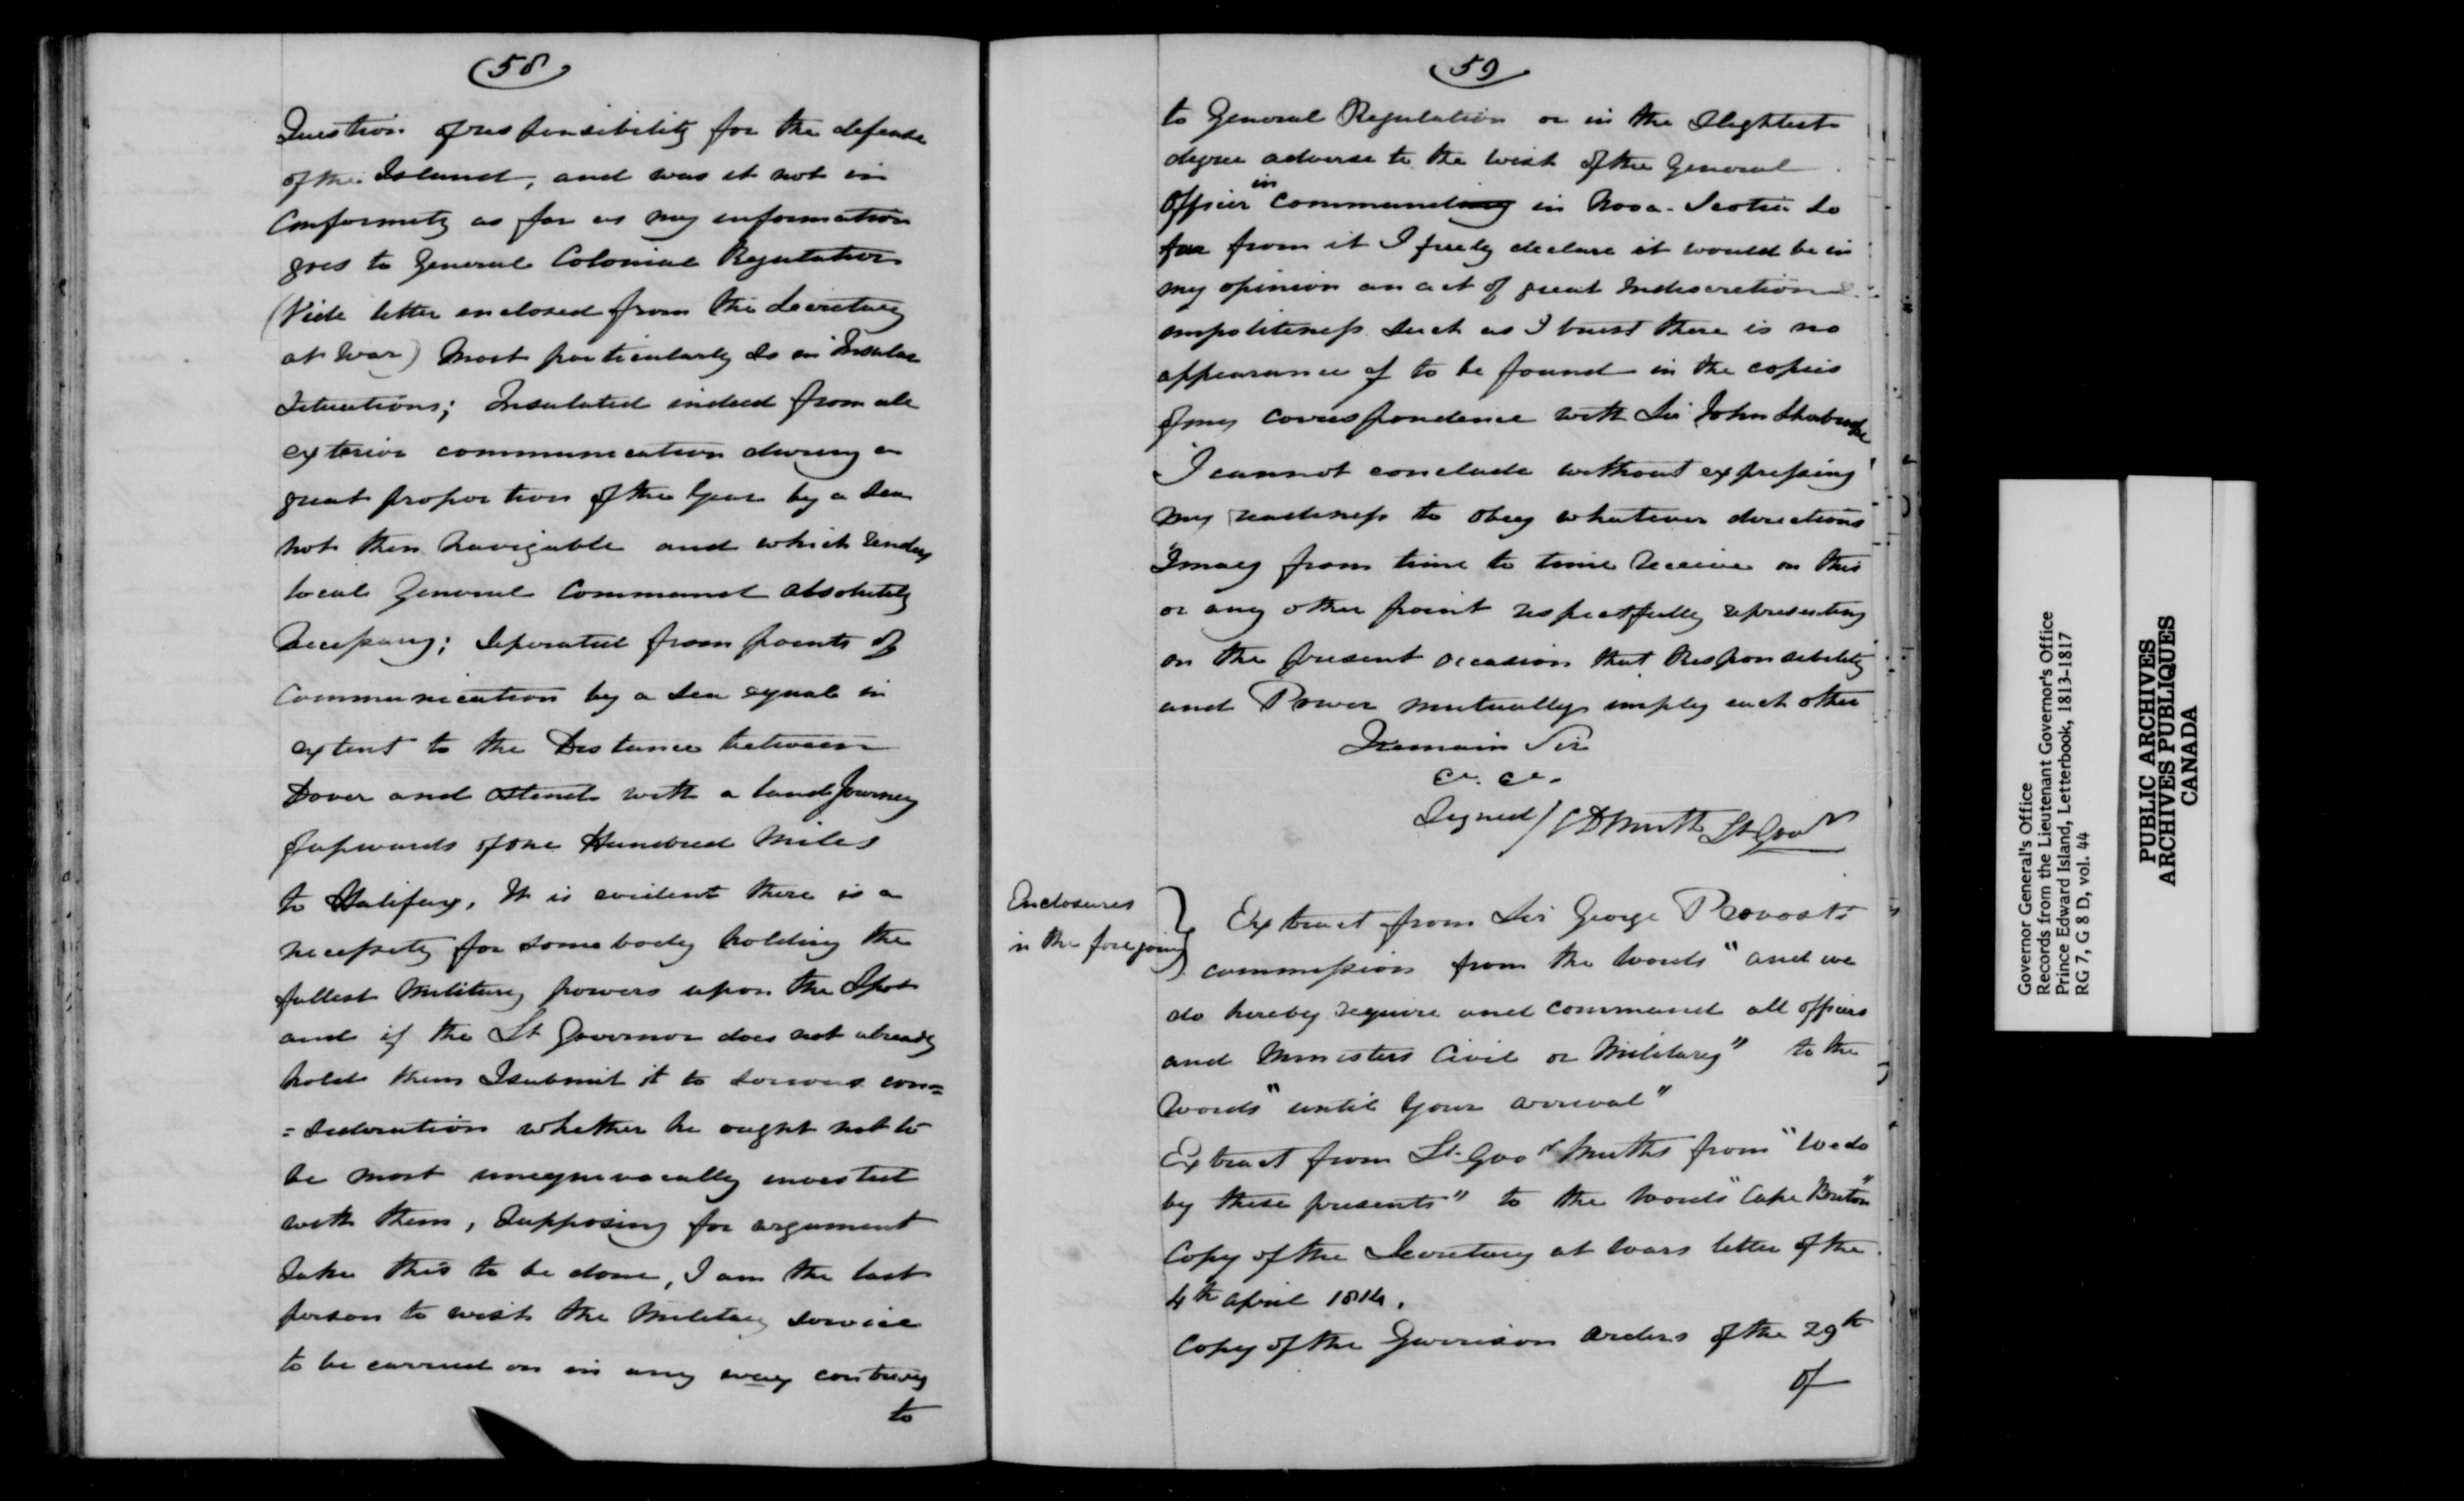 (58)
Question of responsibility for the defense
of the Island, and was it not in
Conformity as far as my information
goes to General Colonial Regulation
(Vide letter enclosed from the Secretary
at War) most particularly so in Insular
Situations; Insulated indeed from all
exterior communication during a
great proportion of the Year by a Sea
not then Navigable and which renders
local General Command absolutely
Necessary; Seperated from points of
Communication by a Sea equal in
extent to the Distance between
Dover and Ostend with a land Journey
of upwards of one Hundred Miles
to Halifax, It is evident there is a
necessity for somebody holding the
fullest Military powers upon the Spot
and if the Lt Governor does not already
hold them I submit it to serious con=
=sideration whether he ought not to
be most unequivocally invested
with them, Supposing for argument
Sake this to be done, I am the last
person to wish the Military service
to be carried on in any way contrary
to
(59)
to General Regulation or in the Slightest
degree adverse to the wish of the General
Officer in Commanding in Nova-Scotia So
far from it I freely declare it would be in
my opinion an act of great Indiscretion &
impoliteness Such as I trust there is no
appearance of to be found in the copies
of my correspondence with Sir John Sherbrooke
I cannot conclude without expressing
my readiness to obey whatever directions
I may from time to time Receive on this
or any other point respectfully representing
on the present occasion that Responsibility
and Power mutually imply each other
I remain Sir
&c. &c.
Signed / C D Smith Lt Govr
Enclosures
in the foregoing
Extract from Sir George Prevosts
commission from the words "and we
do hereby require and command all officers
and Ministers Civil or Military" to the
Words "until your arrival"
Extract from Lt. Govr Smiths from "We do
by these presents" to the words "Cape Breton"
Copy of the Secretary at Wars letter of the
4th April 1814.
Copy of the Garrison Orders of the 29th
of
Governor General's Office
Records from the Lieutenant Governor's Office
Prince Edward Island, Letterbook, 1813-1817
RG 7, G 8 D, vol. 44
PUBLIC ARCHIVES
ARCHIVES PUBLIQUES
CANADA